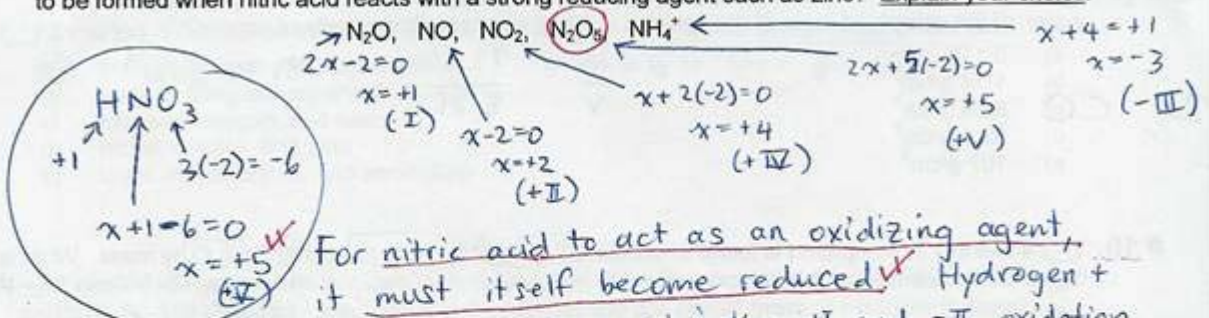 to be formed when nitric acid reacts with a strong reducing agent such as zinc? Explain your
N₂O, NO, NO₂, N₂O₅, NH₄⁺
x+4=+1
x=-3
(-III)
2x-2=0
x=+1
(-I)
x-2=0
x=+2
(+II)
x+2(-2)=0
x=+4
(+IV)
2x+5(-2)=0
x=+5
(+V)
HNO₃
+1
3(-2)=-6
x+1-6=0
x=+5
(+V)
For nitric acid to act as an oxidizing agent,
it must itself become reduced. Hydrogen +
oxidation